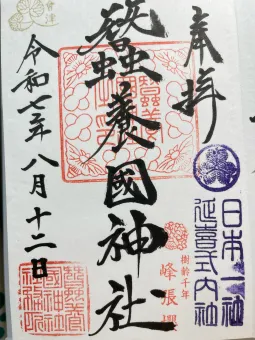 奉拝
日本一社
延喜式内社
樹齢千年
峰張桜
蠶養國神社
會津
令和七年八月十二日